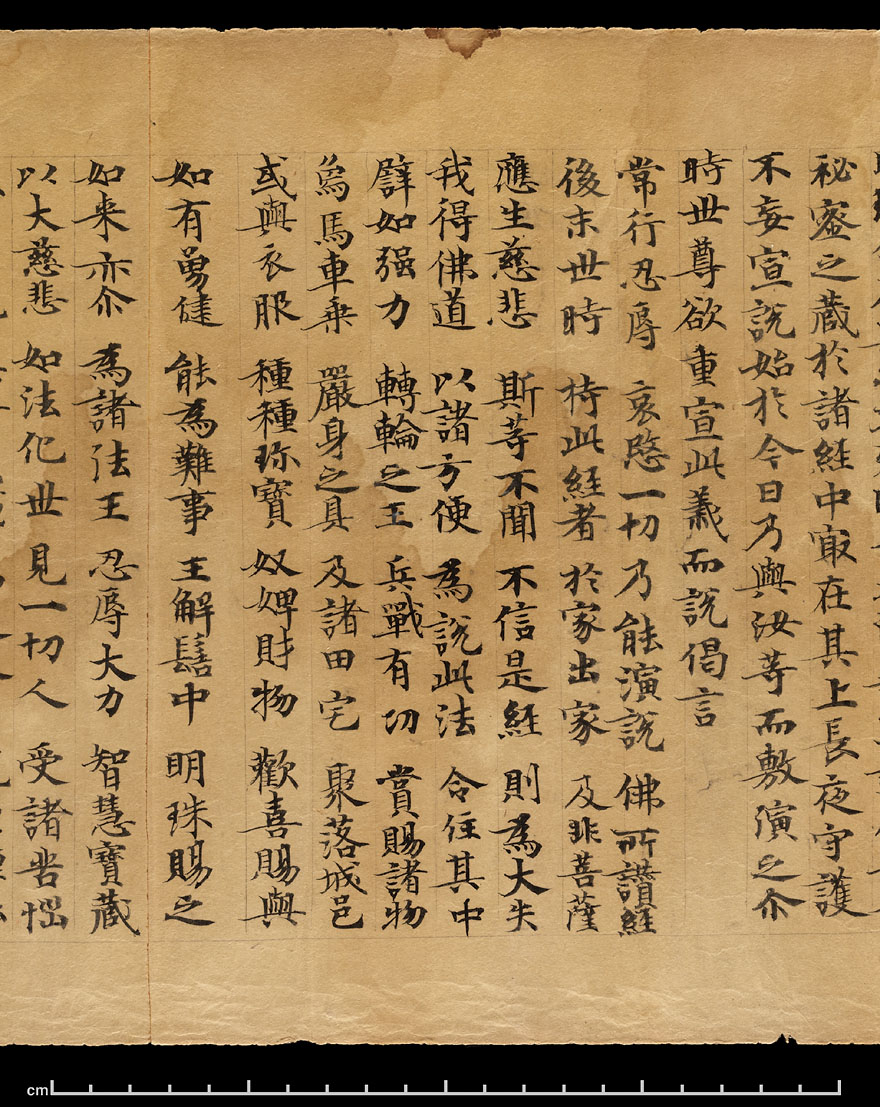 秘密之蔵於諸経中㝡在其上長夜守護
不妄宣説始於今日乃與汝等而敷演之尒
時世尊欲重宣此義而説偈言
常行忍辱 哀愍一切 乃能演説 佛所讃経
後末世時 持此経者 於家出家 及非菩薩
應生慈悲 斯等不聞 不信是経 則為大失
我得佛道 以諸方便 為説此法 令住其中
譬如强力 轉輪之王 兵戰有功 賞賜諸物
為馬車乗 嚴身之具 及諸田宅 聚落城邑
或與衣服 種種珎寶 奴婢財物 歡喜賜與
如有勇健 能為難事 王解髻中 明珠賜之
如来亦尒 為諸法王 忍辱大力 智慧寶蔵
以大慈悲 如法化世 見一切人 受諸苦惱